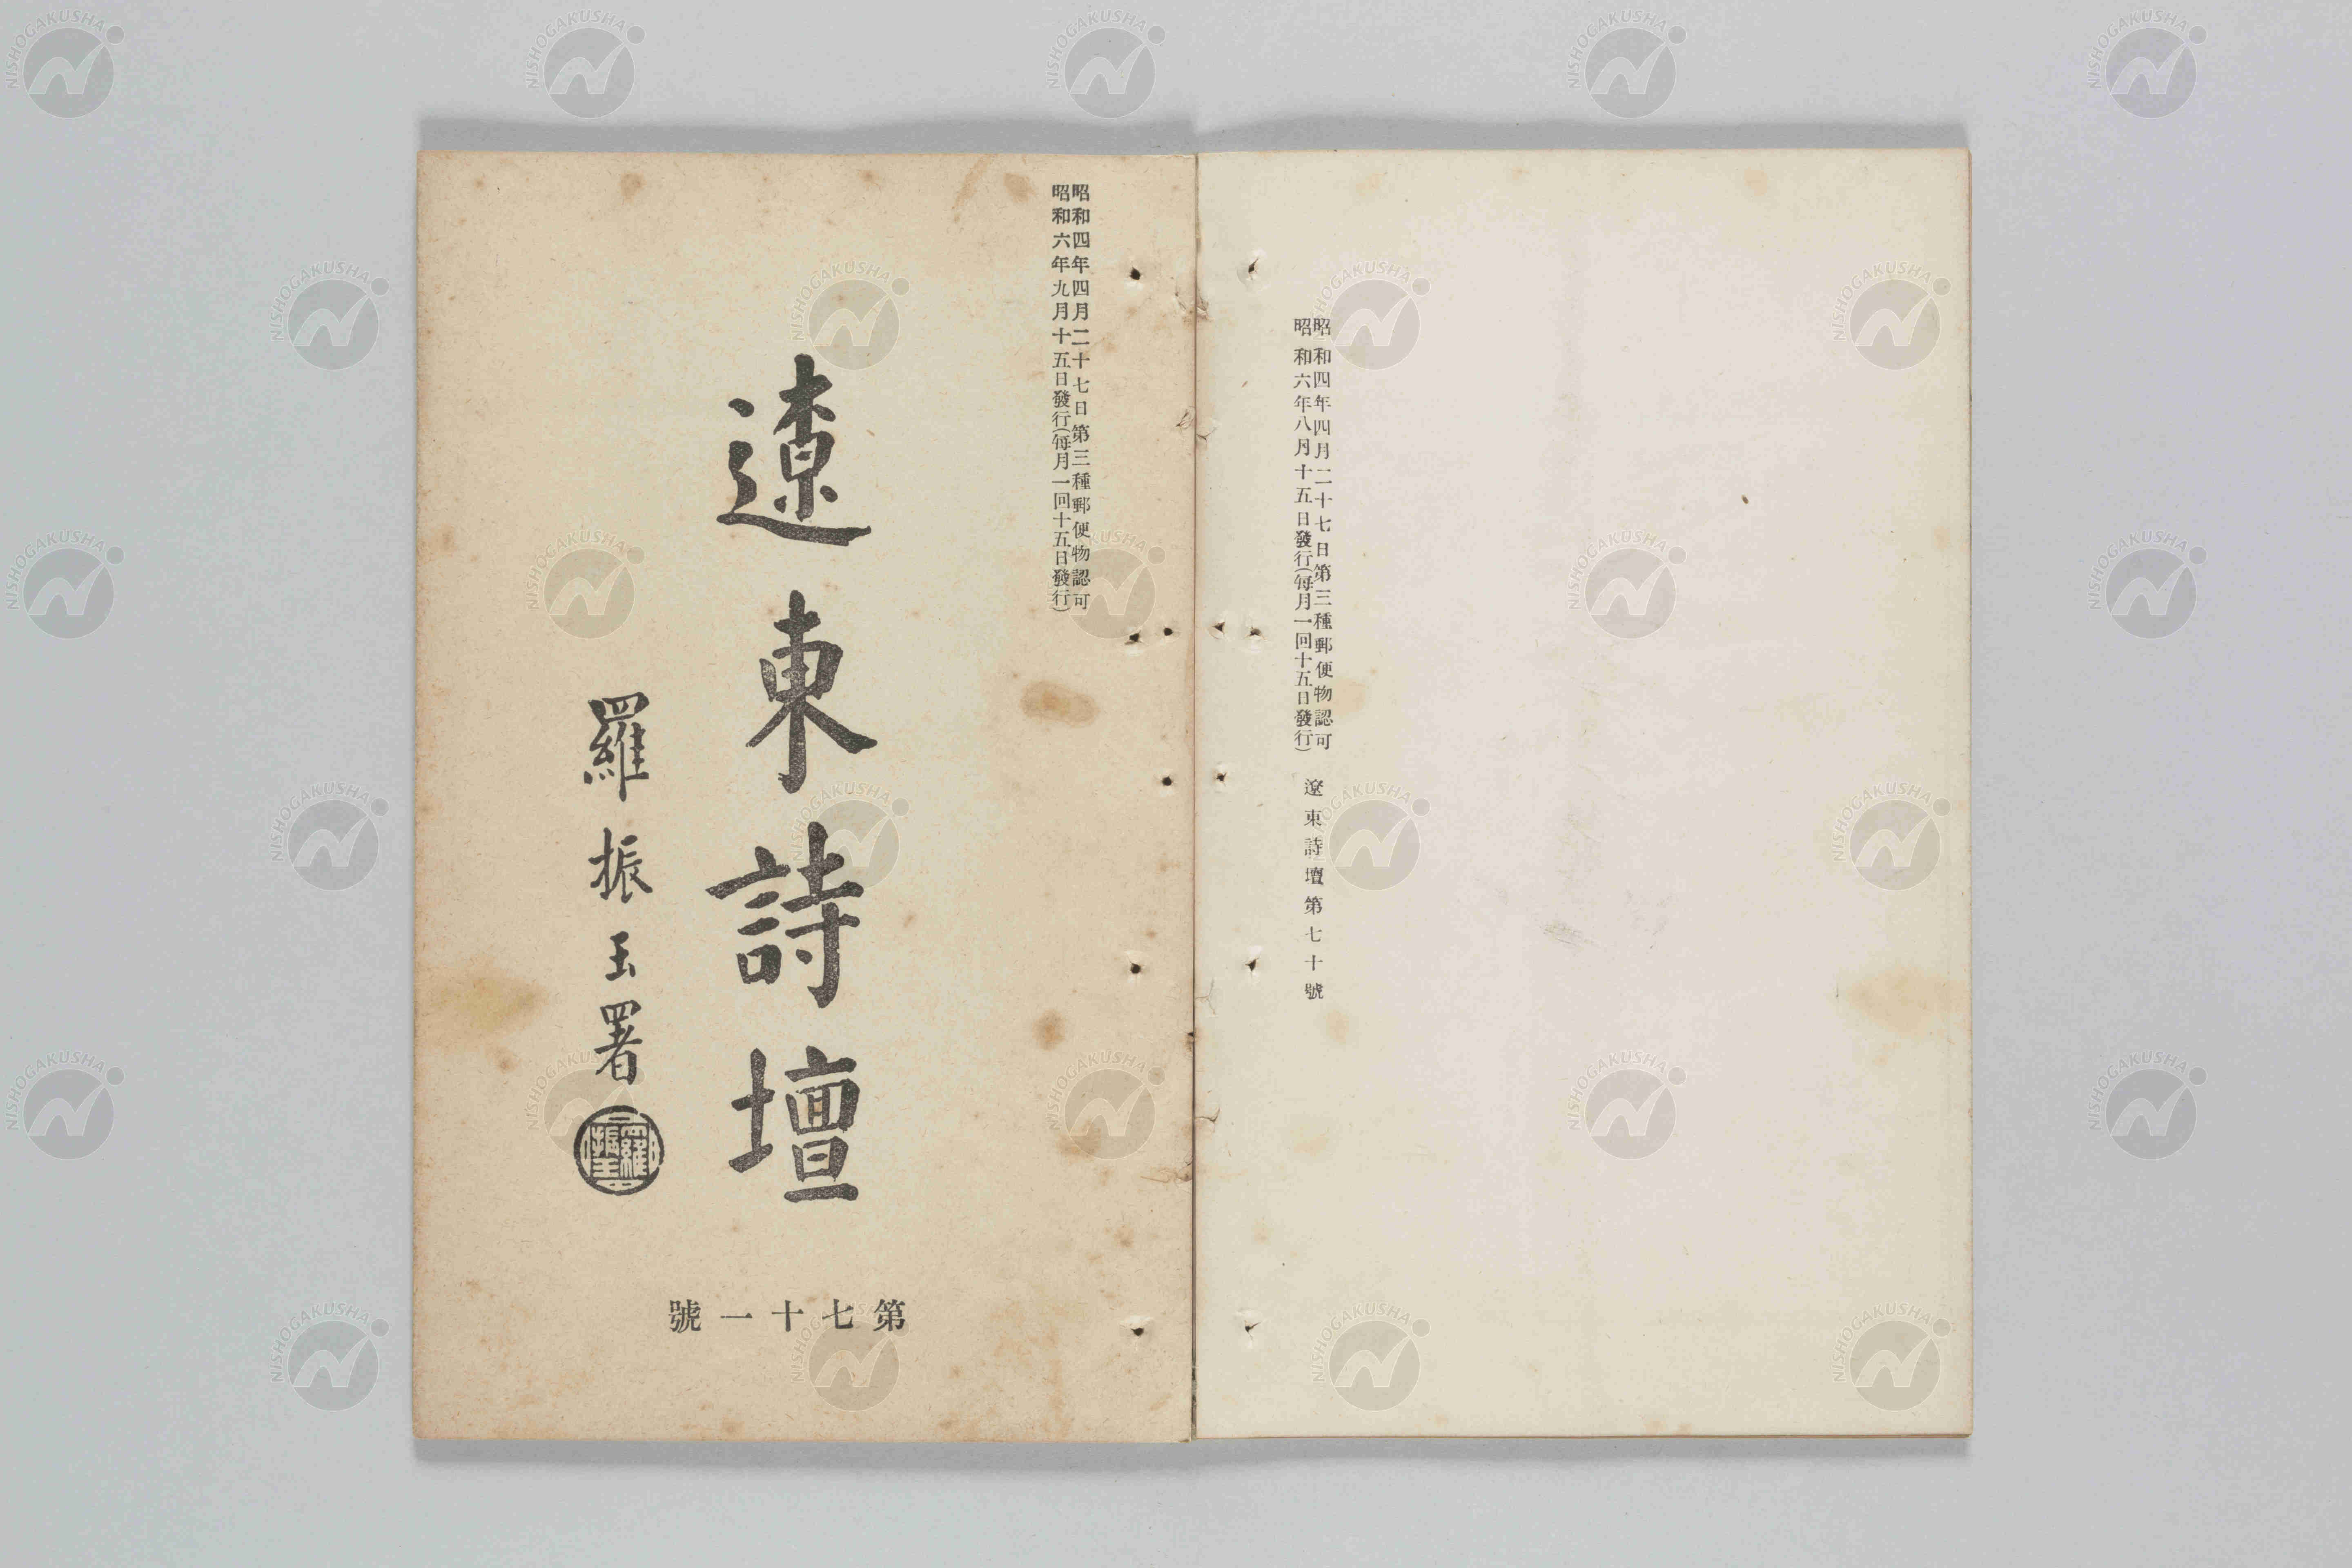 昭和四年四月二十七日第三種郵便物認可
昭和六年八月十五日發行(每月一回十五日發行)
遼東詩壇第七十號
昭和四年四月二十七日第三種郵便物認可
昭和六年九月十五日發行(每月一回十五日發行)
遼東詩壇
羅振玉署
羅振玉
第七十一號
NISHOGAKUSHA